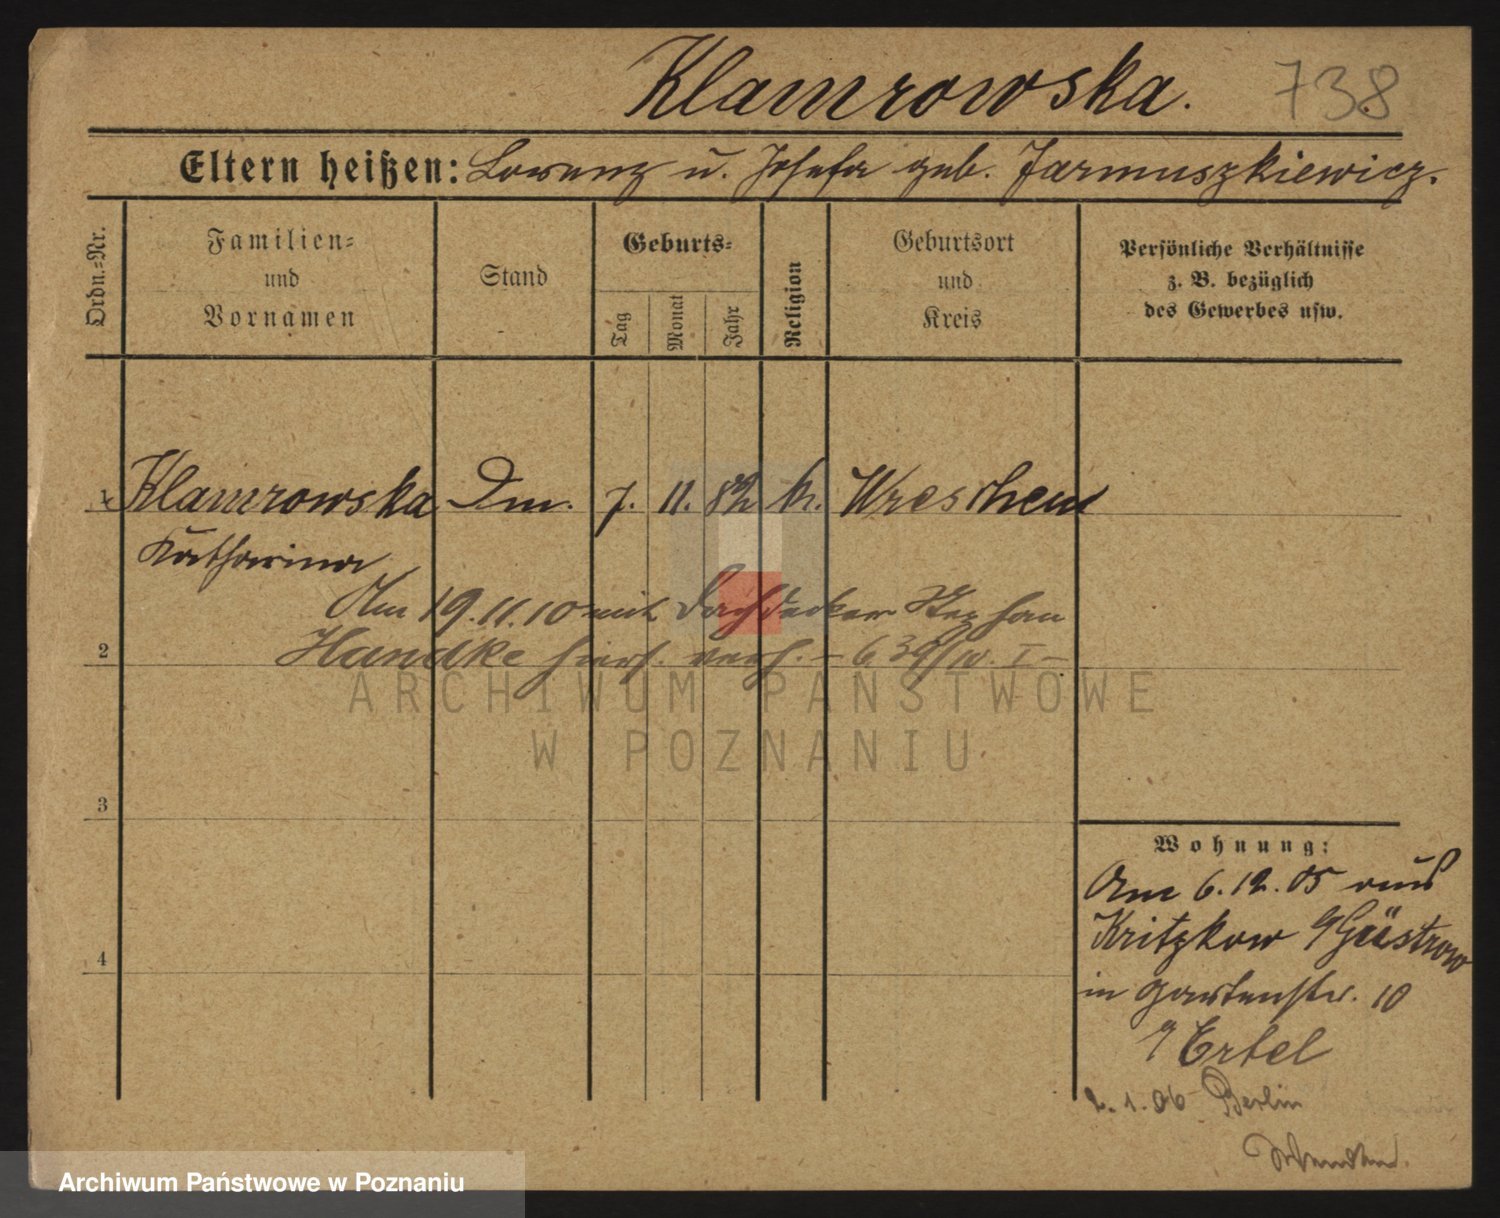 Klamrowska. 738
Eltern heißen: Lorenz u. Josefa geb. Jarmuszkiewicz.
Ordn.-Nr.
Familien-
und
Vornamen
Stand
Geburts-
Tag
Monat
Jahr
Religion
Geburtsort
und
Kreis
Persönliche Verhältnisse
z. B. bezüglich
des Gewerbes usw.
1 Klamrowska Dm. 7. 11. 82 k. Wreschen
Katharina
Am 19.11.10 mit Dachdecker Stephan
2
Handke hiers. verh. – 639/10. I –
ARCHIWUM PAŃSTWOWE
W POZNANIU
3
Wohnung:
Am 6.12.05 aus
Kritzkow Güstrow
4
in Gartenstr. 10
Ertel
2.1.06 Berlin
Archiwum Państwowe w Poznaniu